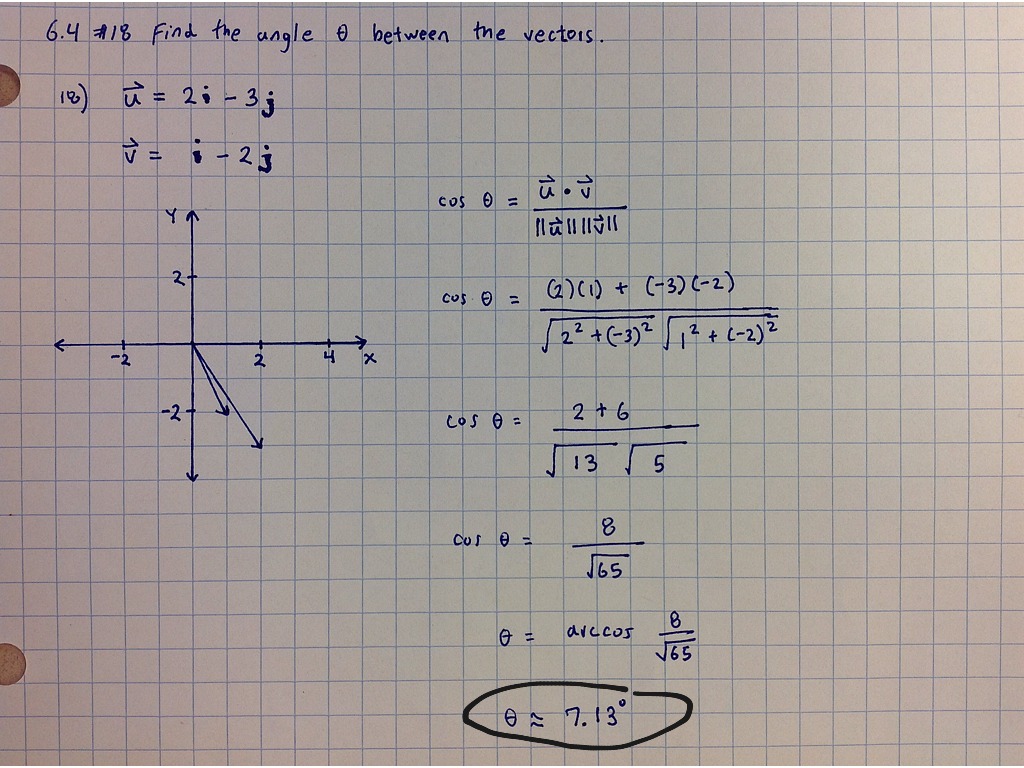 6.4 #18 Find the angle θ between the vectors.
18) u⃗ = 2i - 3j
v⃗ = i - 2j
Y
2
-2 2 4 x
-2
cos θ = u⃗ • v⃗ / ||u⃗|| ||v⃗||
cos θ = (2)(1) + (-3)(-2) / √(2² + (-3)²) √(1² + (-2)²)
cos θ = 2 + 6 / √13 √5
cos θ = 8 / √65
θ = arccos 8 / √65
θ ≈ 7.13°